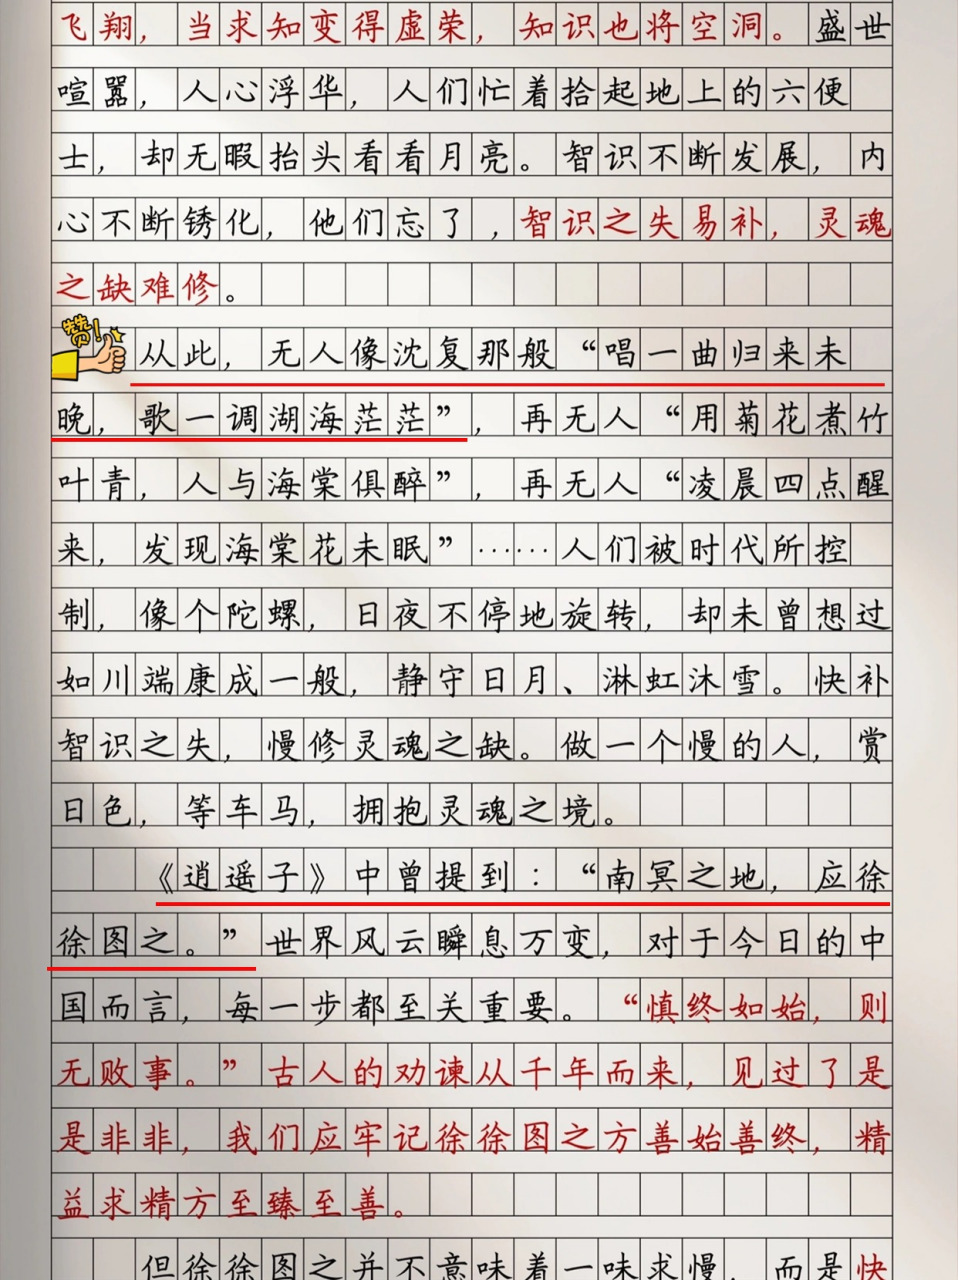 飞翔，当求知变得虚荣，知识也将空洞。盛世
喧嚣，人心浮华，人们忙着拾起地上的六便
士，却无暇抬头看看月亮。智识不断发展，内
心不断锈化，他们忘了，智识之失易补，灵魂
之缺难修。
赞！
从此，无人像沈复那般“唱一曲归来未
晚，歌一调湖海茫茫”，再无人“用菊花煮竹
叶青，人与海棠俱醉”，再无人“凌晨四点醒
来，发现海棠花未眠”……人们被时代所控
制，像个陀螺，日夜不停地旋转，却未曾想过
如川端康成一般，静守日月、淋虹沐雪。快补
智识之失，慢修灵魂之缺。做一个慢的人，赏
日色，等车马，拥抱灵魂之境。
《逍遥子》中曾提到：“南冥之地，应徐
徐图之。”世界风云瞬息万变，对于今日的中
国而言，每一步都至关重要。“慎终如始，则
无败事。”古人的劝谏从千年而来，见过了是
是非非，我们应牢记徐徐图之方善始善终，精
益求精方至臻至善。
但徐徐图之并不意味着一味求慢，而是快